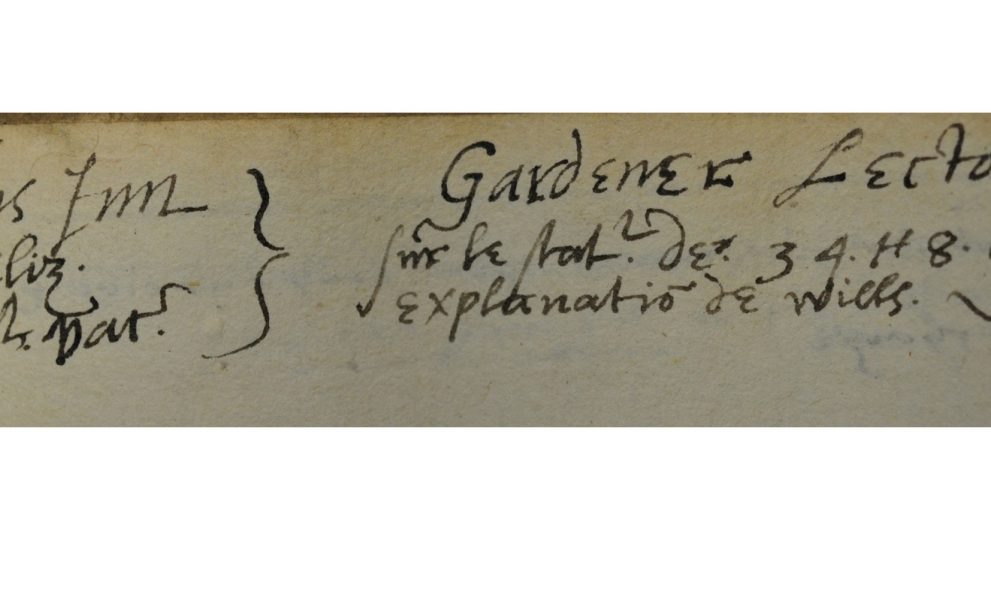 Inn } Gardener Lecto
liz. sur le stat. de. 34. H 8.
pat. explanatio de wills.